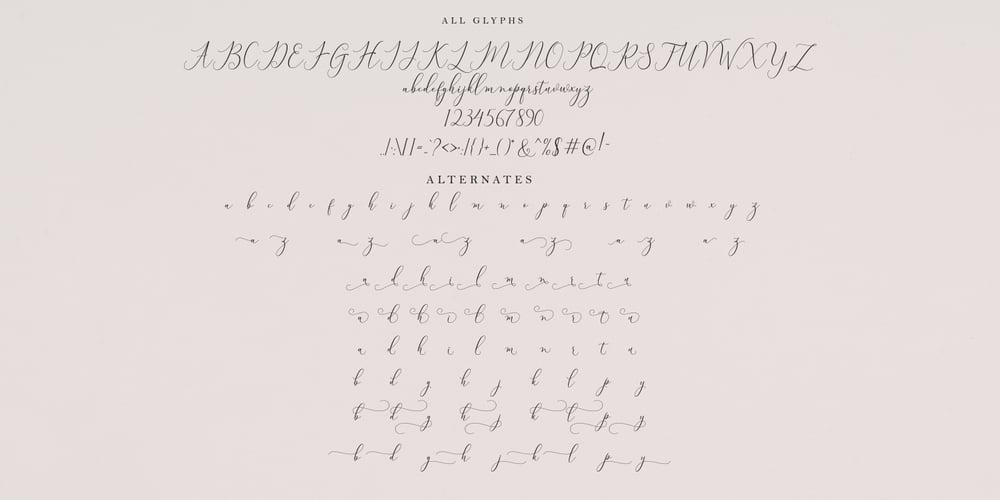 ALL GLYPHS
A B C D E F G H I J K L M N O P Q R S T U V W X Y Z
a b c d e f g h i j k l m n o p q r s t u v w x y z
1 2 3 4 5 6 7 8 9 0
ALTERNATES
a b c d e f g h i j k l m n o p q r s t u v w x y z
a z a z a z a z a z a z
a d h i l m n r t u
a d h i l m n r t u
a d h i l m n r t u
b d g h j k l p y
b d g h j k l p y
b d g h j k l p y